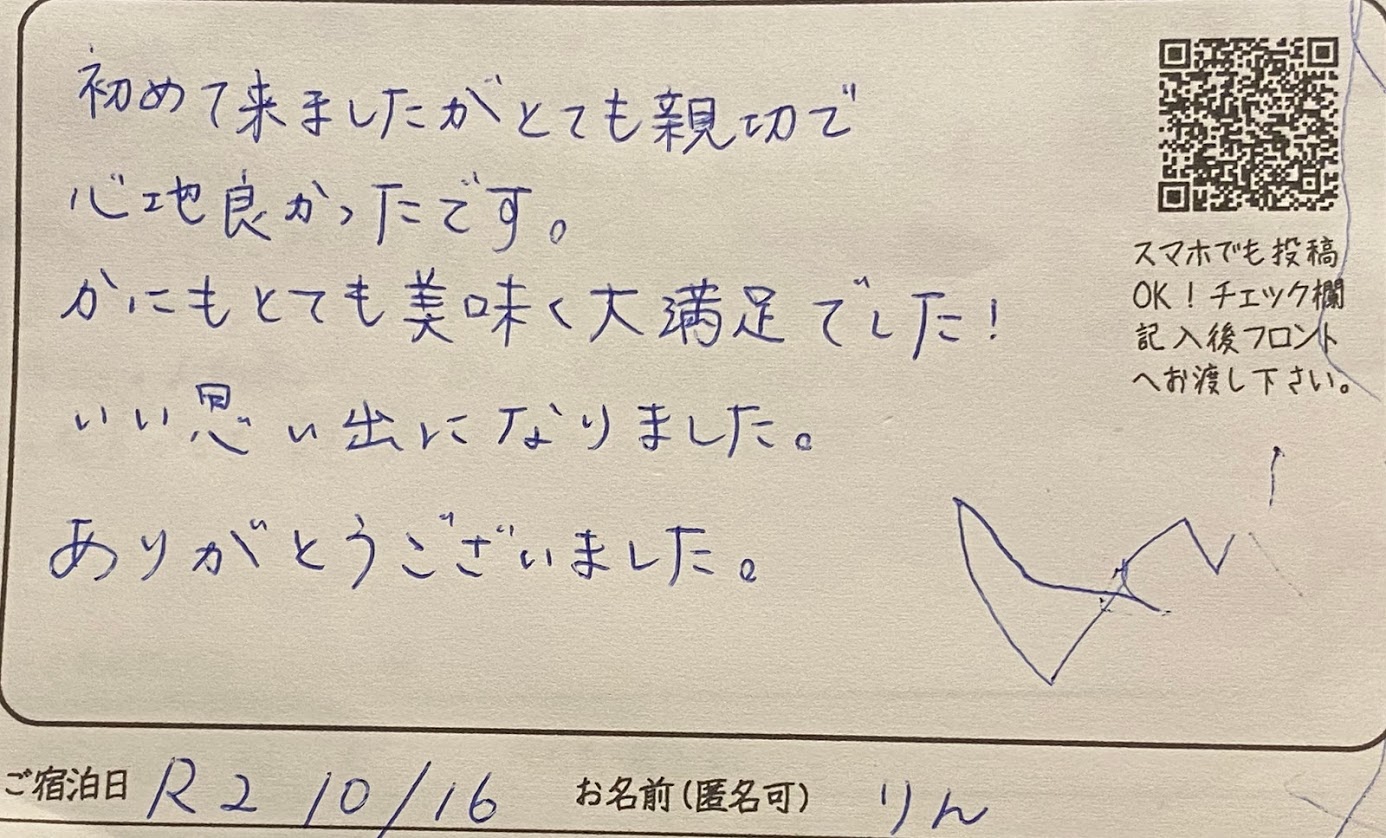 初めて来ましたがとても親切で
心地良かったです。
かにもとても美味く大満足でした!
いい思い出になりました。
ありがとうございました。
スマホでも投稿
OK!チェック欄
記入後フロント
へお渡し下さい。
ご宿泊日 R2 10/16 お名前(匿名可) りん